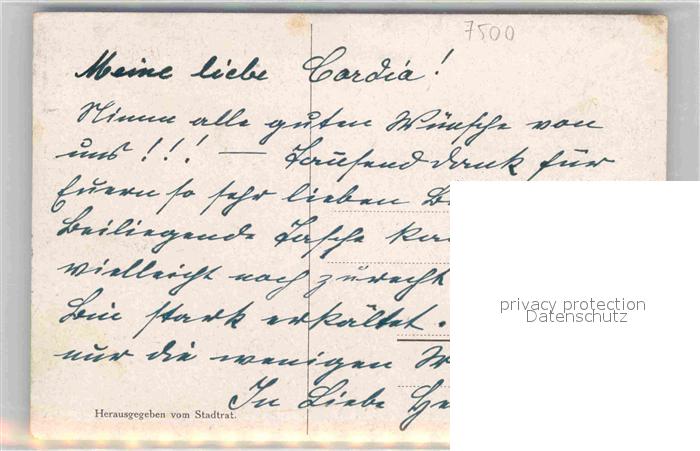 7500
Meine liebe Cordia!
Nimm alle guten Wünsche von
uns!!! — Tausend dank für
Euern so sehr lieben
Beiliegende Tasche
vielleicht noch zurecht
Bin stark erkältet.
nur die wenigen
In Liebe
Herausgegeben vom Stadtrat.
privacy protection
Datenschutz